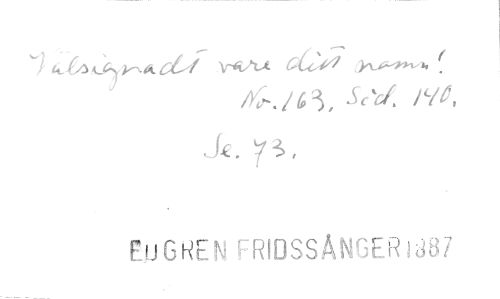 Välsignadt vare ditt namn!
No. 163, Sid. 140.
Se. 73.
EUGREN FRIDSSÅNGER 1887